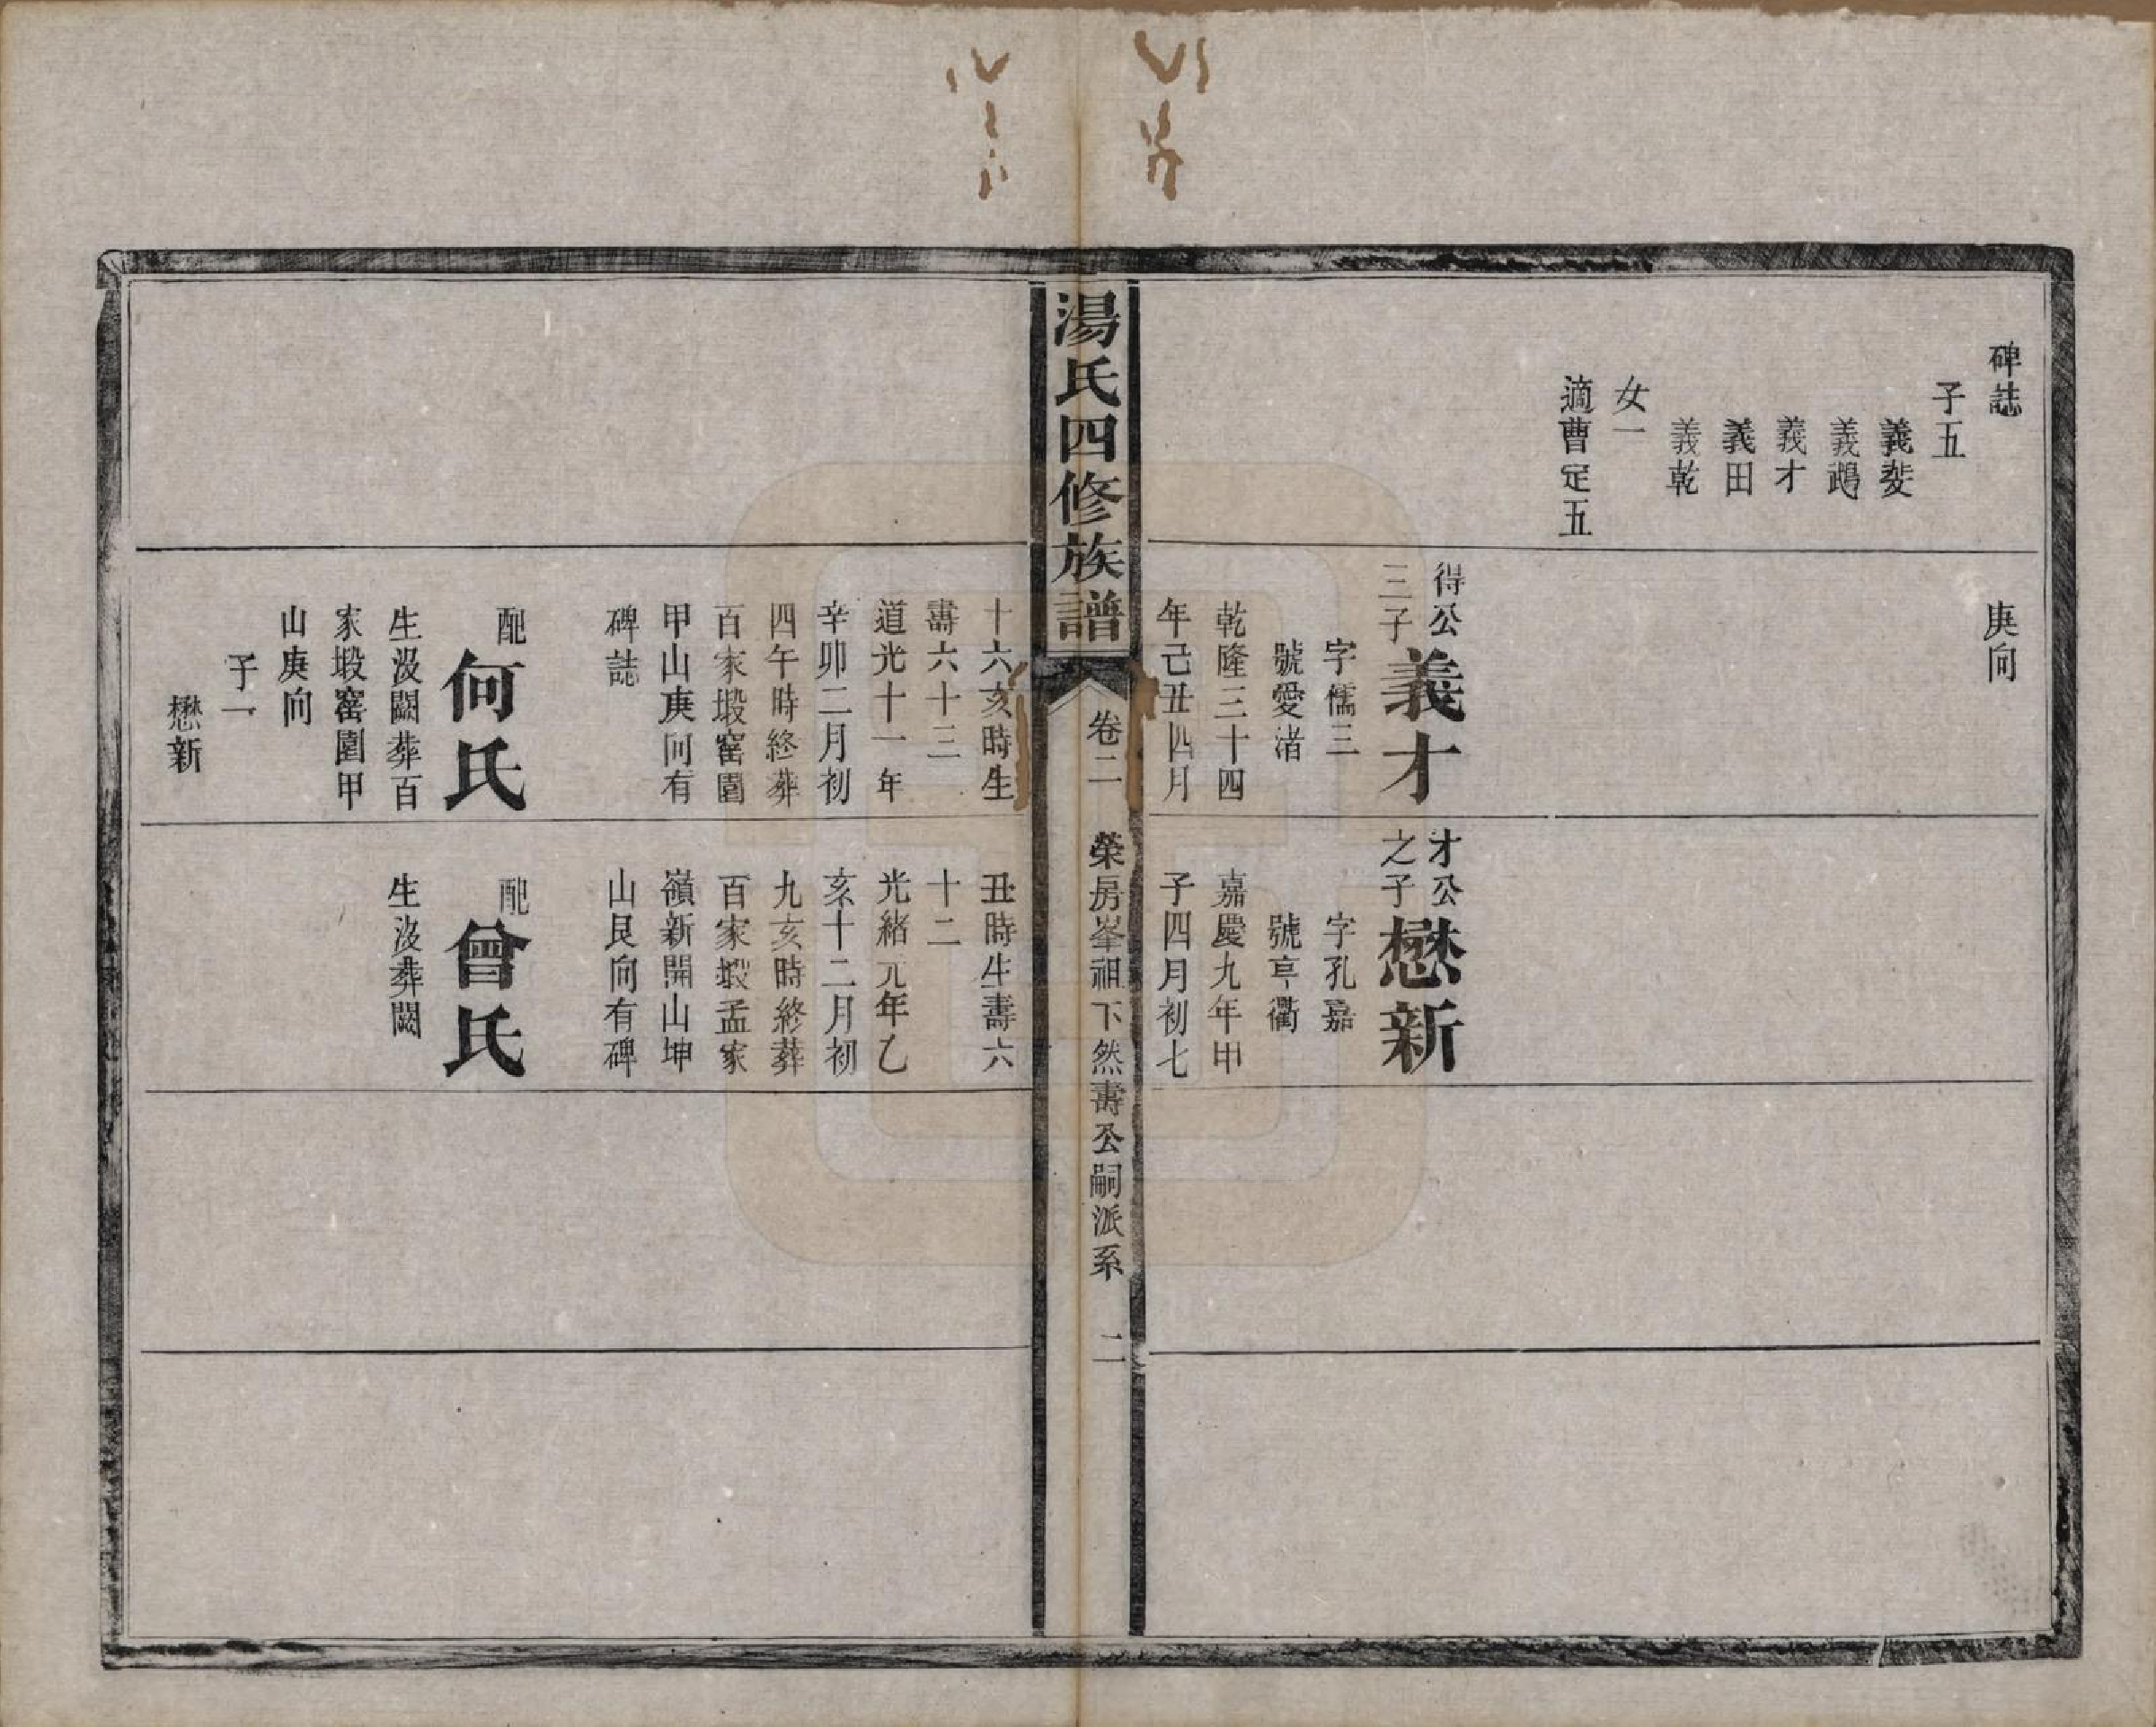 碑誌
子五
義䶮
義鵡
義才
義田
義乾
女一
適曹定五
庚向
得公
三子
義才
字儒三
號愛渚
乾隆三十四
年己丑四月
才公
之子
懋新
字孔嘉
號亨衢
嘉慶九年甲
子四月初七
湯氏四修族譜
卷二
榮房峯祖下然壽公嗣派系
二
十六亥時生
壽六十三
道光十一年
辛卯二月初
四午時終葬
百家塅窰園
甲山庚向有
碑誌
配
何氏
生沒闕葬百
家塅窰園甲
山庚向
子一
懋新
丑時生壽六
十二
光緒元年乙
亥十二月初
九亥時終葬
百家塅孟家
嶺新開山坤
山艮向有碑
配
曾氏
生沒葬闕